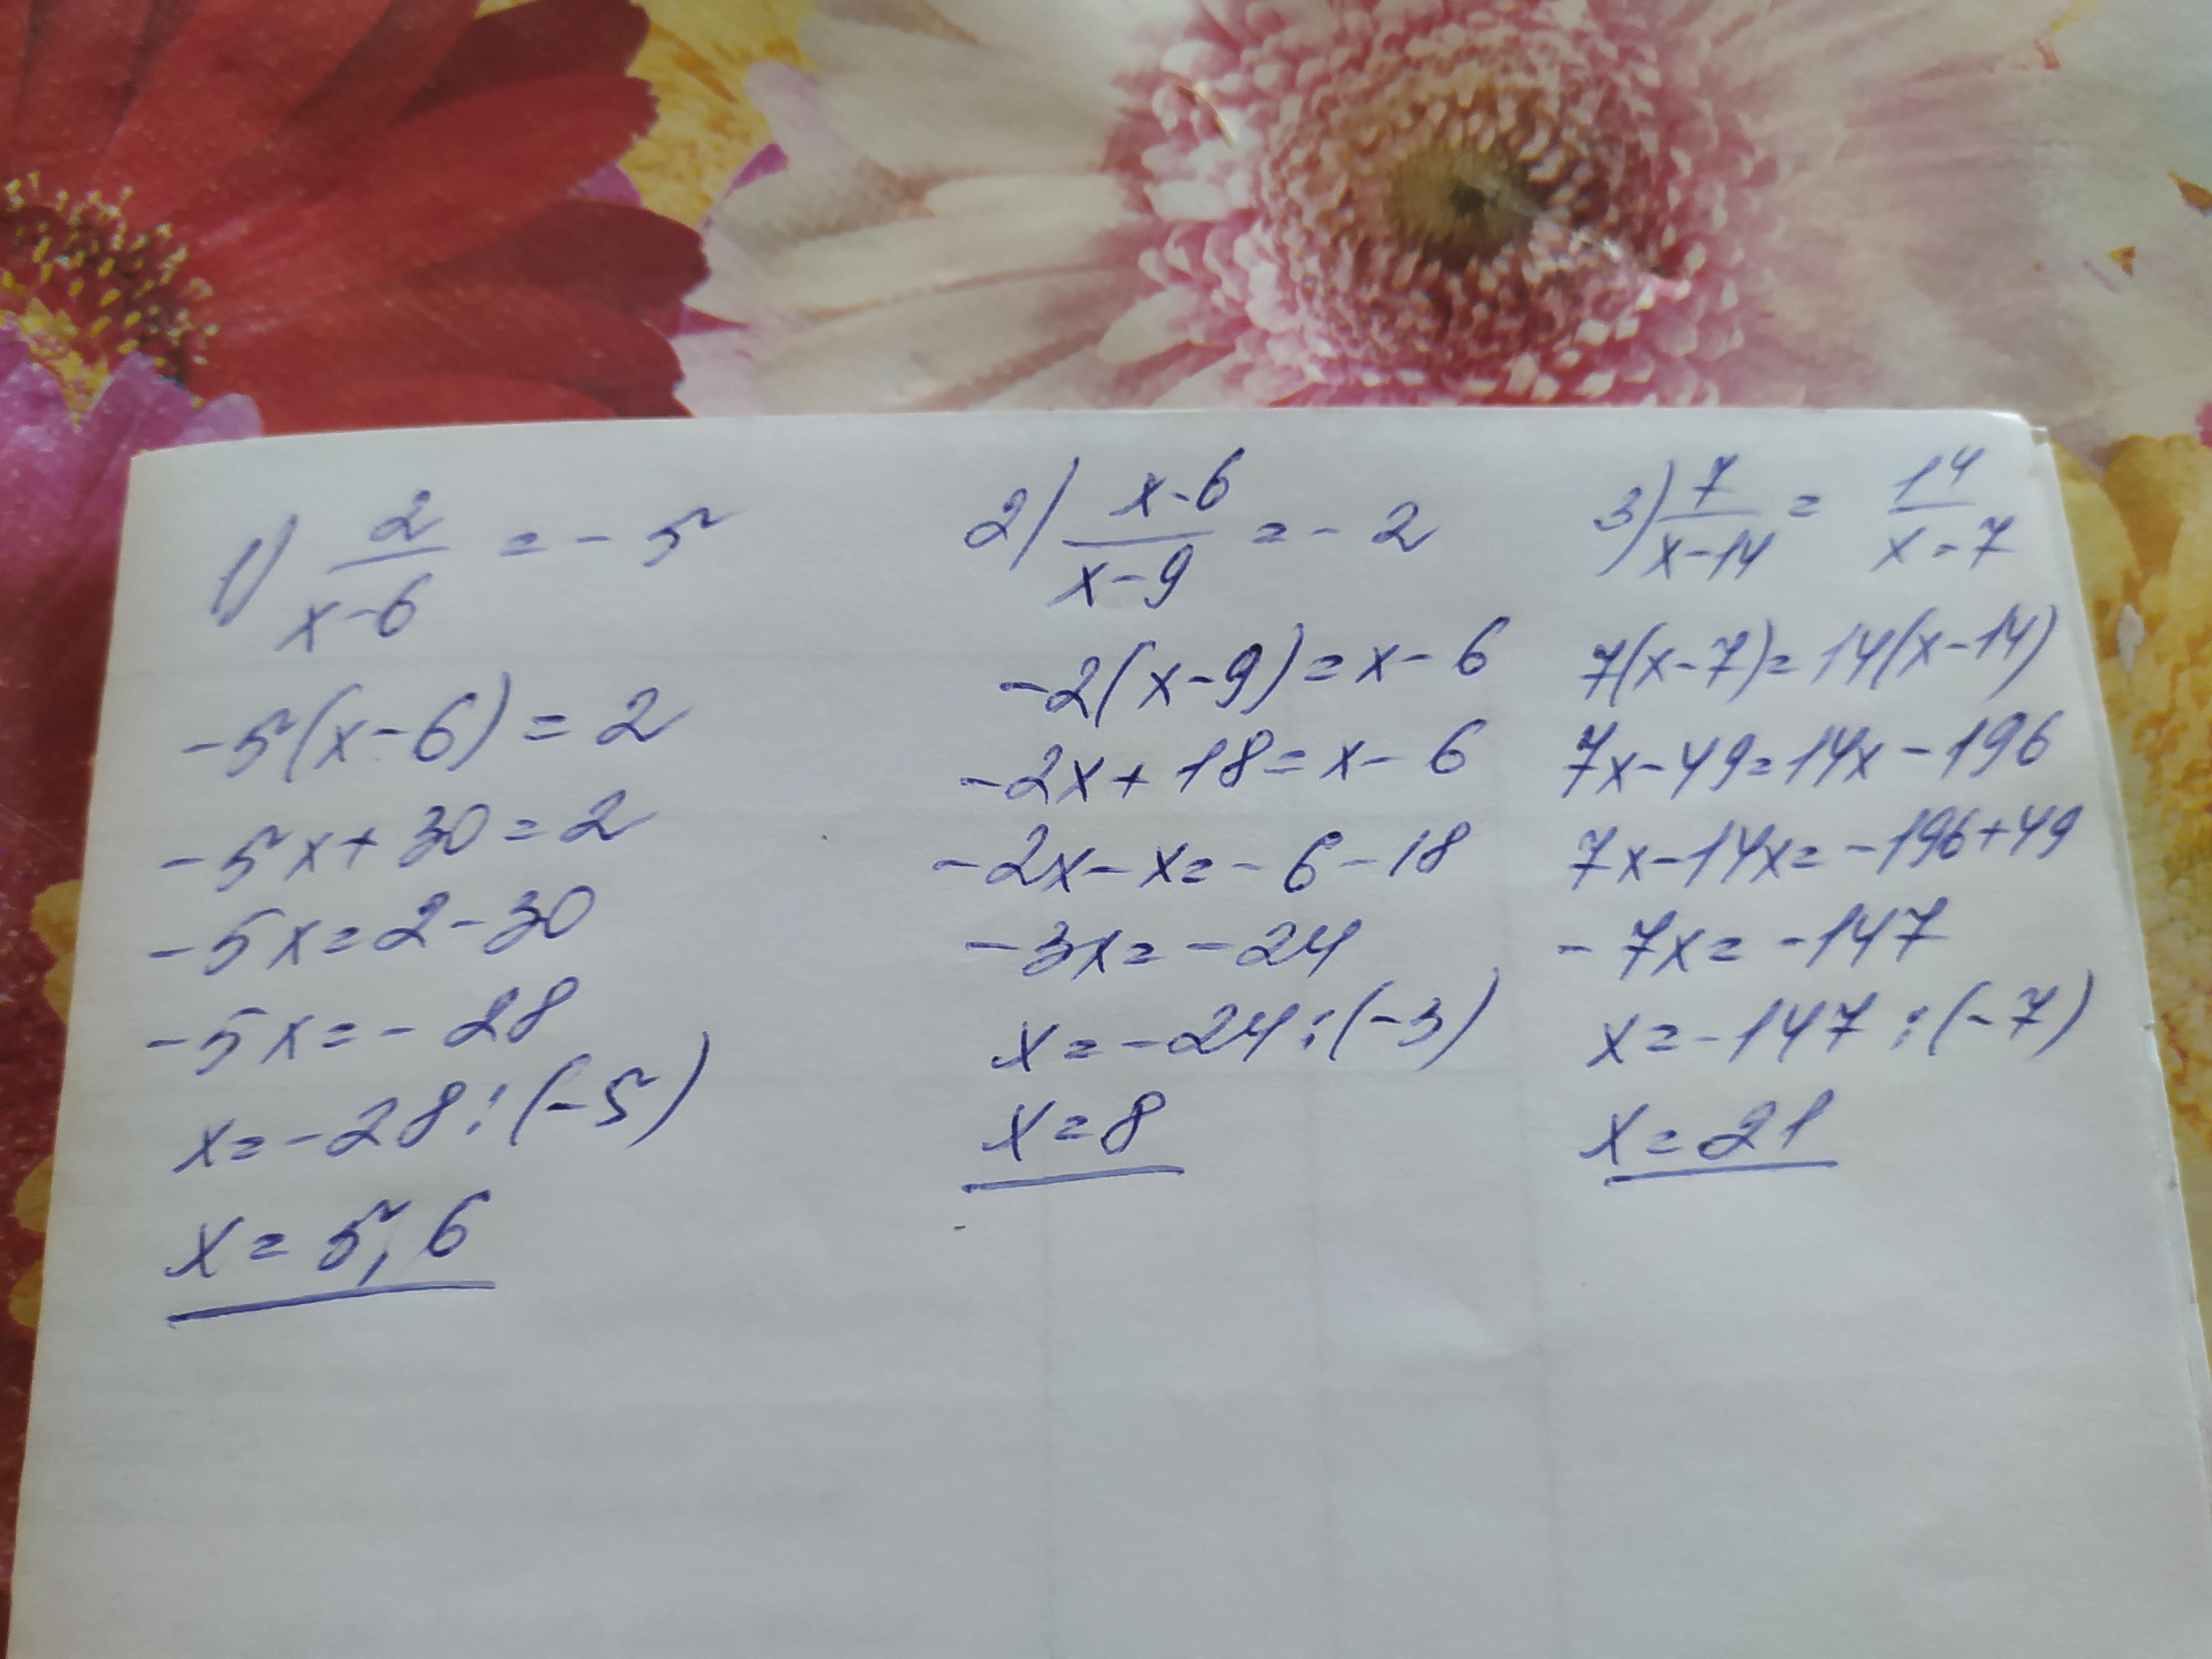 1) 2/(x-6) = -5
-5(x-6) = 2
-5x+30=2
-5x=2-30
-5x=-28
x=-28:(-5)
x=5,6
2) (x-6)/(x-9) = -2
-2(x-9)=x-6
-2x+18=x-6
-2x-x=-6-18
-3x=-24
x=-24:(-3)
x=8
3) 7/(x-14) = 14/(x-7)
7(x-7)=14(x-14)
7x-49=14x-196
7x-14x=-196+49
-7x=-147
x=-147:(-7)
x=21